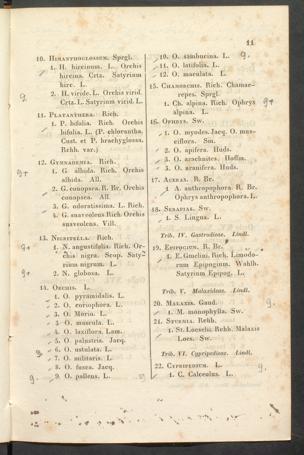 11
10. Himanthoglossum. Sprgl.
1. H. hircinum. L. Orchis
hircina. Crtz. Satyrium
hirc. L.
2. H. viride. L. Orchis virid.
Crtz. L. Satyrium virid. L.
11. Platanthera. Rich.
1. P. bifolia. Rich. Orchis
bifolia. L. (P. chlorantha.
Cust. et P. brachyglossa.
Rchb. var.)
12. Gymnadenia. Rich.
1. G. albida. Rich. Orchis
albida. All.
2. G. conopsea. R. Br. Orchis
conopsea. All.
3. G. odoratissima. L. Rich.
4. G. suaveolens Rich. Orchis
suaveolens. Vill.
13. Nigritella. Rich.
1. N. angustifolia. Rich. Or-
chis nigra. Scop. Saty-
rium nigrum. L.
2. N. globosa. L.
14. Orchis. L.
1. O. pyramidalis. L.
2. O. coriophora. L.
3. O. Morio. L.
4. O. mascula. L.
4. O. laxiflora. Lam.
5. O. palustris. Jacq.
6. O. ustulata. L.
7. O. militaris. L.
8. O. fusca. Jacq.
9. O. pallens. L.
10. O. sambucina. L.
11. O. latifolia. L.
12. O. maculata. L.
15. Chamorchis. Rich. Chamae-
repes. Sprgl.
1. Ch. alpina. Rich. Ophrys
alpina. L.
16. Ophrys. Sw.
1. O. myodes. Jacq. O. mus-
ciflora. Sm.
2. O. apifera. Huds.
3. O. arachnites. Hoffm.
5. O. aranifera. Huds.
17. Aceras. R. Br.
1. A. anthropophora. R. Br.
Ophrys anthropophora. L.
18. Serapias. Sw.
1. S. Lingua. L.
Trib. IV. Gastrodieae. Lindl.
19. Epipogium. R. Br.
1. E. Gmelini. Rich. Limodo-
rum Epipogium. Wahlb.
Satyrium Epipog. L.
Trib. V. Malaxideae. Lindl.
20. Malaxis. Gaud.
1. M. monophylla. Sw.
21. Sturmia. Rchb.
1. St. Loeselii. Rchb. Malaxis
Loes. Sw.
Trib. VI. Cypripedieae. Lindl.
22. Cypripedium. L.
1. C. Calceolus. L.